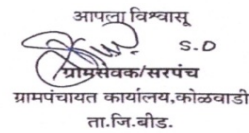 आपला विश्वासू
S.D
ग्रामसेवक/सरपंच
ग्रामपंचायत कार्यालय,कोळवाडी
ता.जि.बीड.